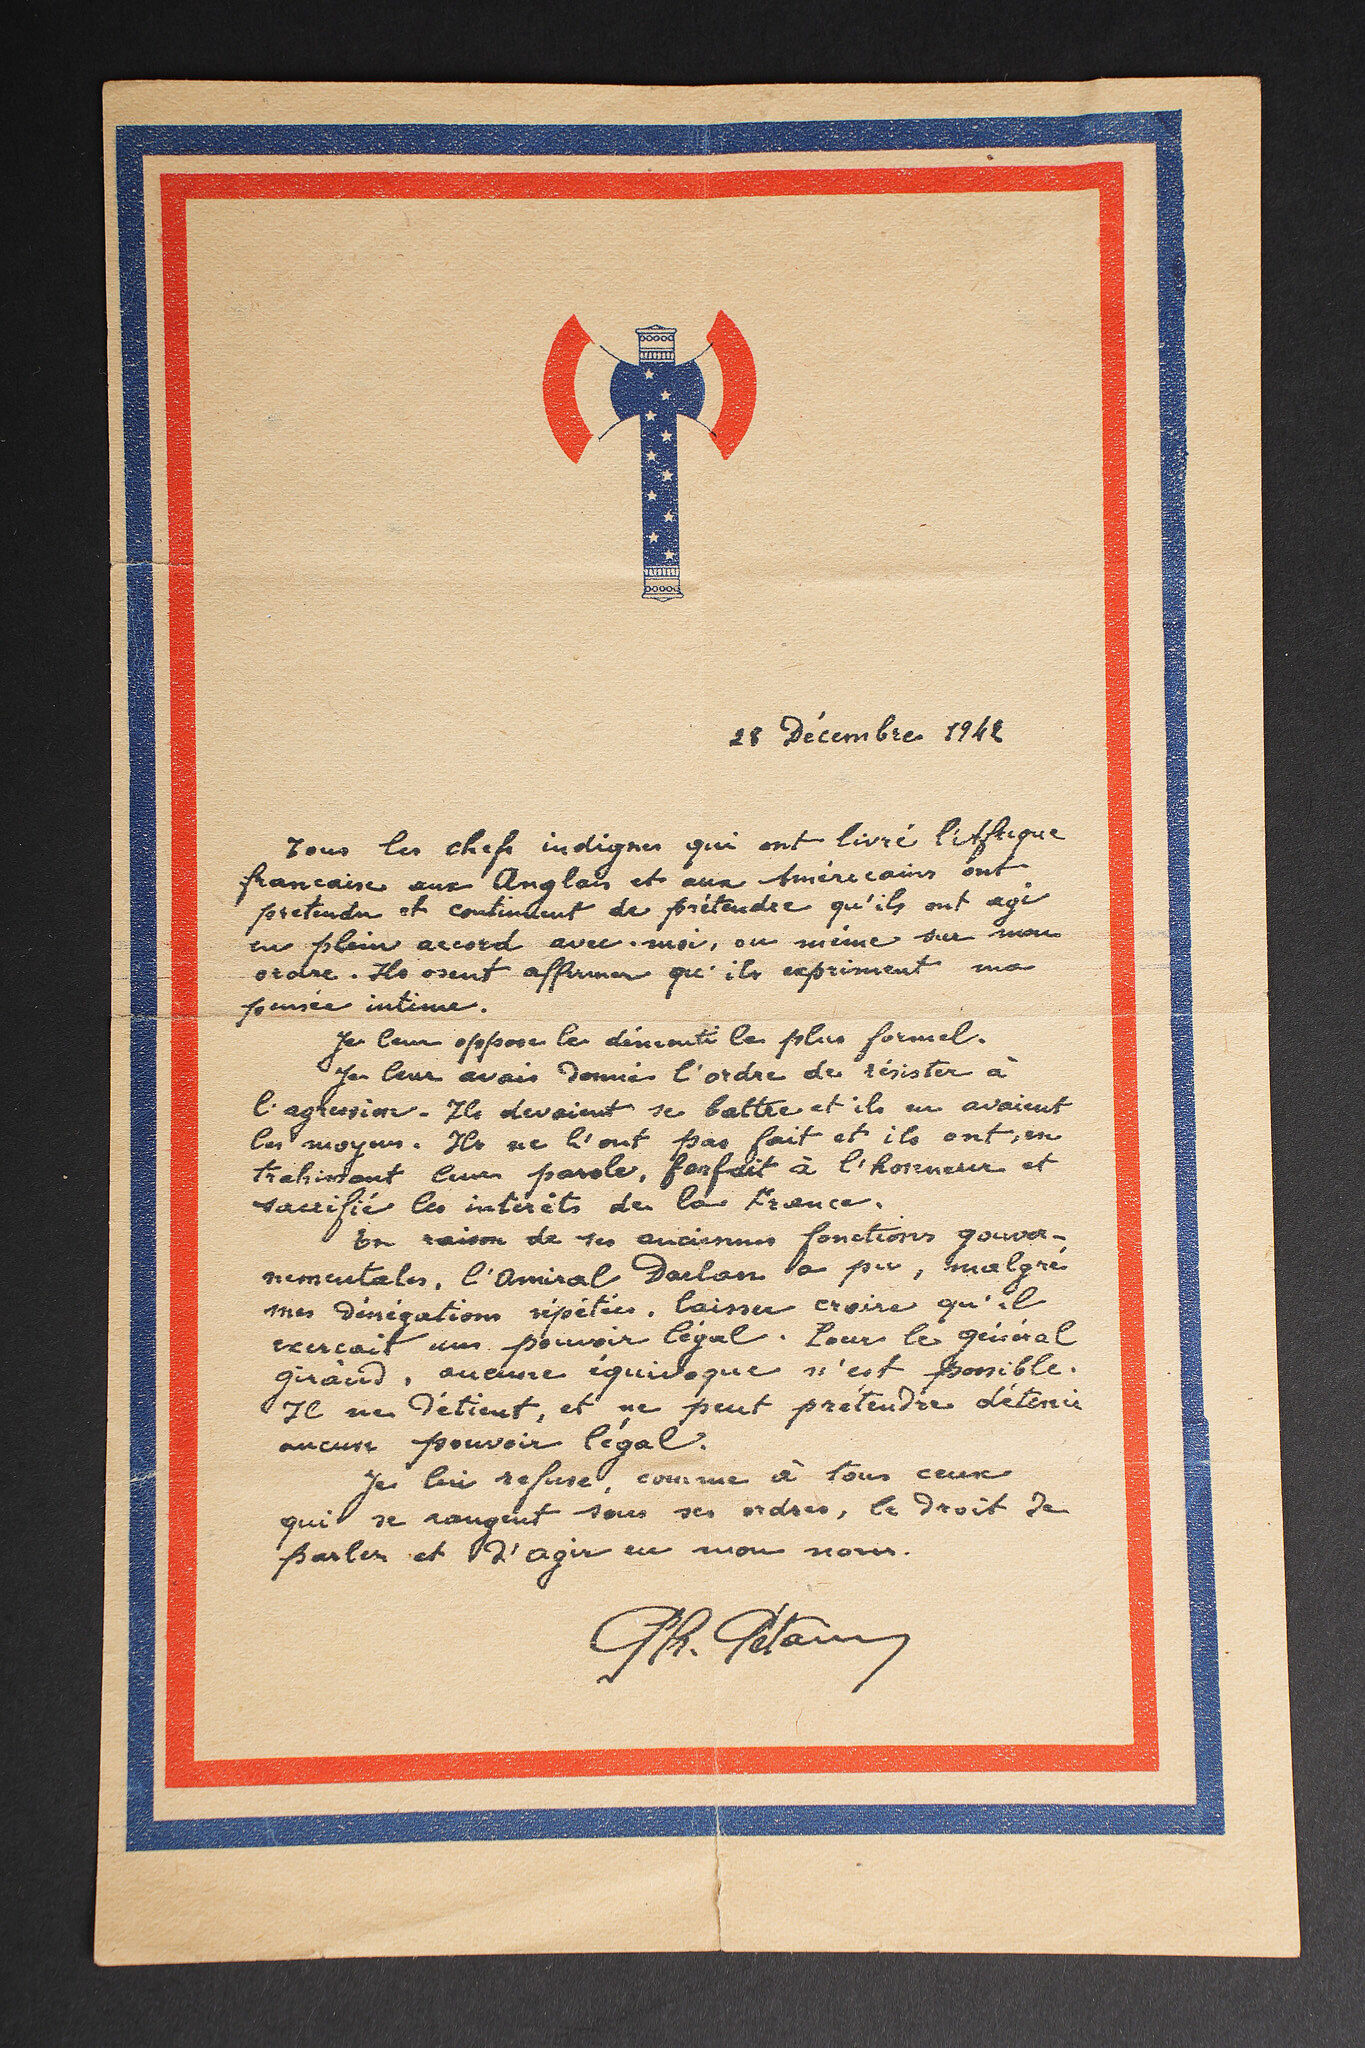 28 Décembre 1942
Tous les chefs indignes qui ont livré l'Afrique
francaise aux Anglais et aux Américains ont
pretendu et continuent de prétendre qu'ils ont agi
en plein accord avec moi, ou même sur mon
ordre. Ils osent affirmer qu'ils expriment ma
pensée intime.
Je leur oppose le démenti le plus formel.
Je leur avais donné l'ordre de résister à
l'agression. Ils devaient se battre et ils en avaient
les moyens. Ils ne l'ont pas fait et ils ont, en
trahissant leur parole, forfait à l'honneur et
sacrifié les intérêts de la France.
En raison de ses anciennes fonctions gouver-
nementales, l'Amiral Darlan a pu, malgré
mes dénégations répétées, laisser croire qu'il
exercait un pouvoir légal. Pour le général
giraud, aucune équivoque n'est possible.
Il ne détient, et ne peut prétendre détenir
aucun pouvoir légal.
Je lui refuse, comme à tous ceux
qui se rangent sous ses ordres, le droit de
parler et d'agir en mon nom.
Ph. Pétain